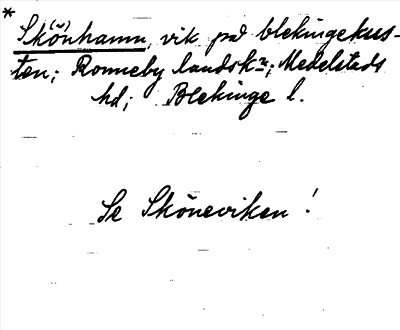 * Sk(ö)önhamn, vik på blekingekus-
ten; Ronneby landsk:n; Medelstads
hd; Blekinge l.
Se Sköneviken!